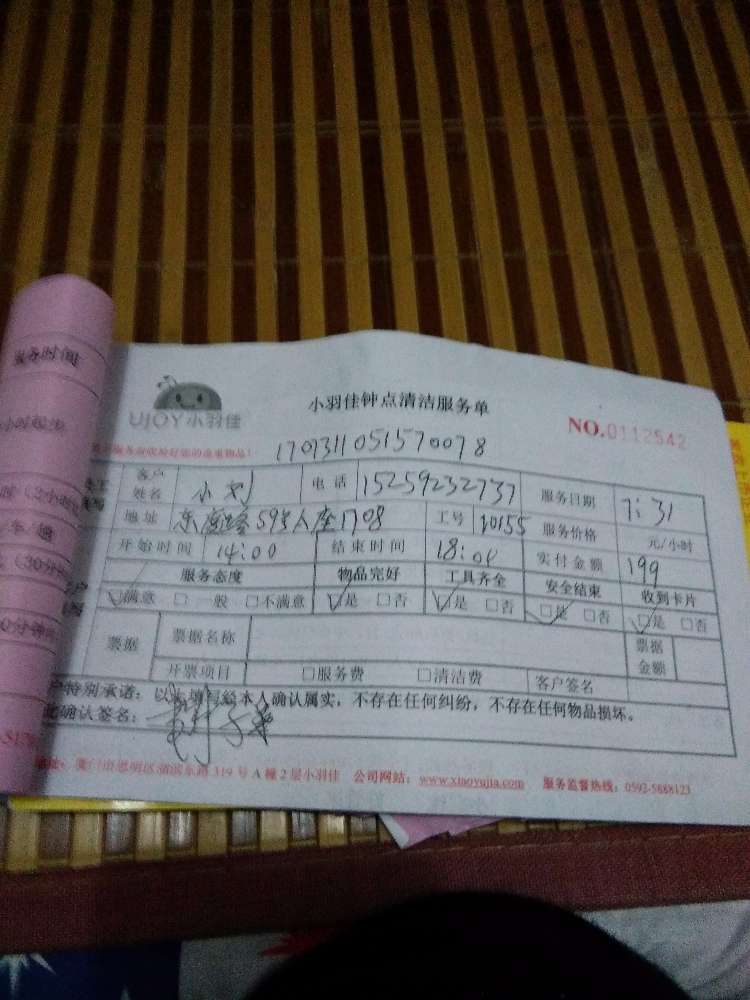 服务时间
小时起步
UJOY小羽佳
小羽佳钟点清洁服务单
NO.0112542
1707311051570078
客户姓名 小刘 电话 15259232737 服务日期 7:31
地址 59号 座1708 工号 10155 服务价格 元/小时
开始时间 14:00 结束时间 18:00 实付金额 199
服务态度 物品完好 工具齐全 安全结束 收到卡片
☑满意 □一般 □不满意 ☑是 □否 ☑是 □否 ☑是 □否 ☑是 □否
票据 票据名称 票据金额
开票项目 □服务费 □清洁费 客户签名
户特别承诺:以上填写经本人确认属实,不存在任何纠纷,不存在任何物品损坏。
此确认签名:
地址:厦门市思明区湖滨东路319号A幢2层小羽佳 公司网站:www.xiaoyujia.com 服务监督热线:0592-5888123